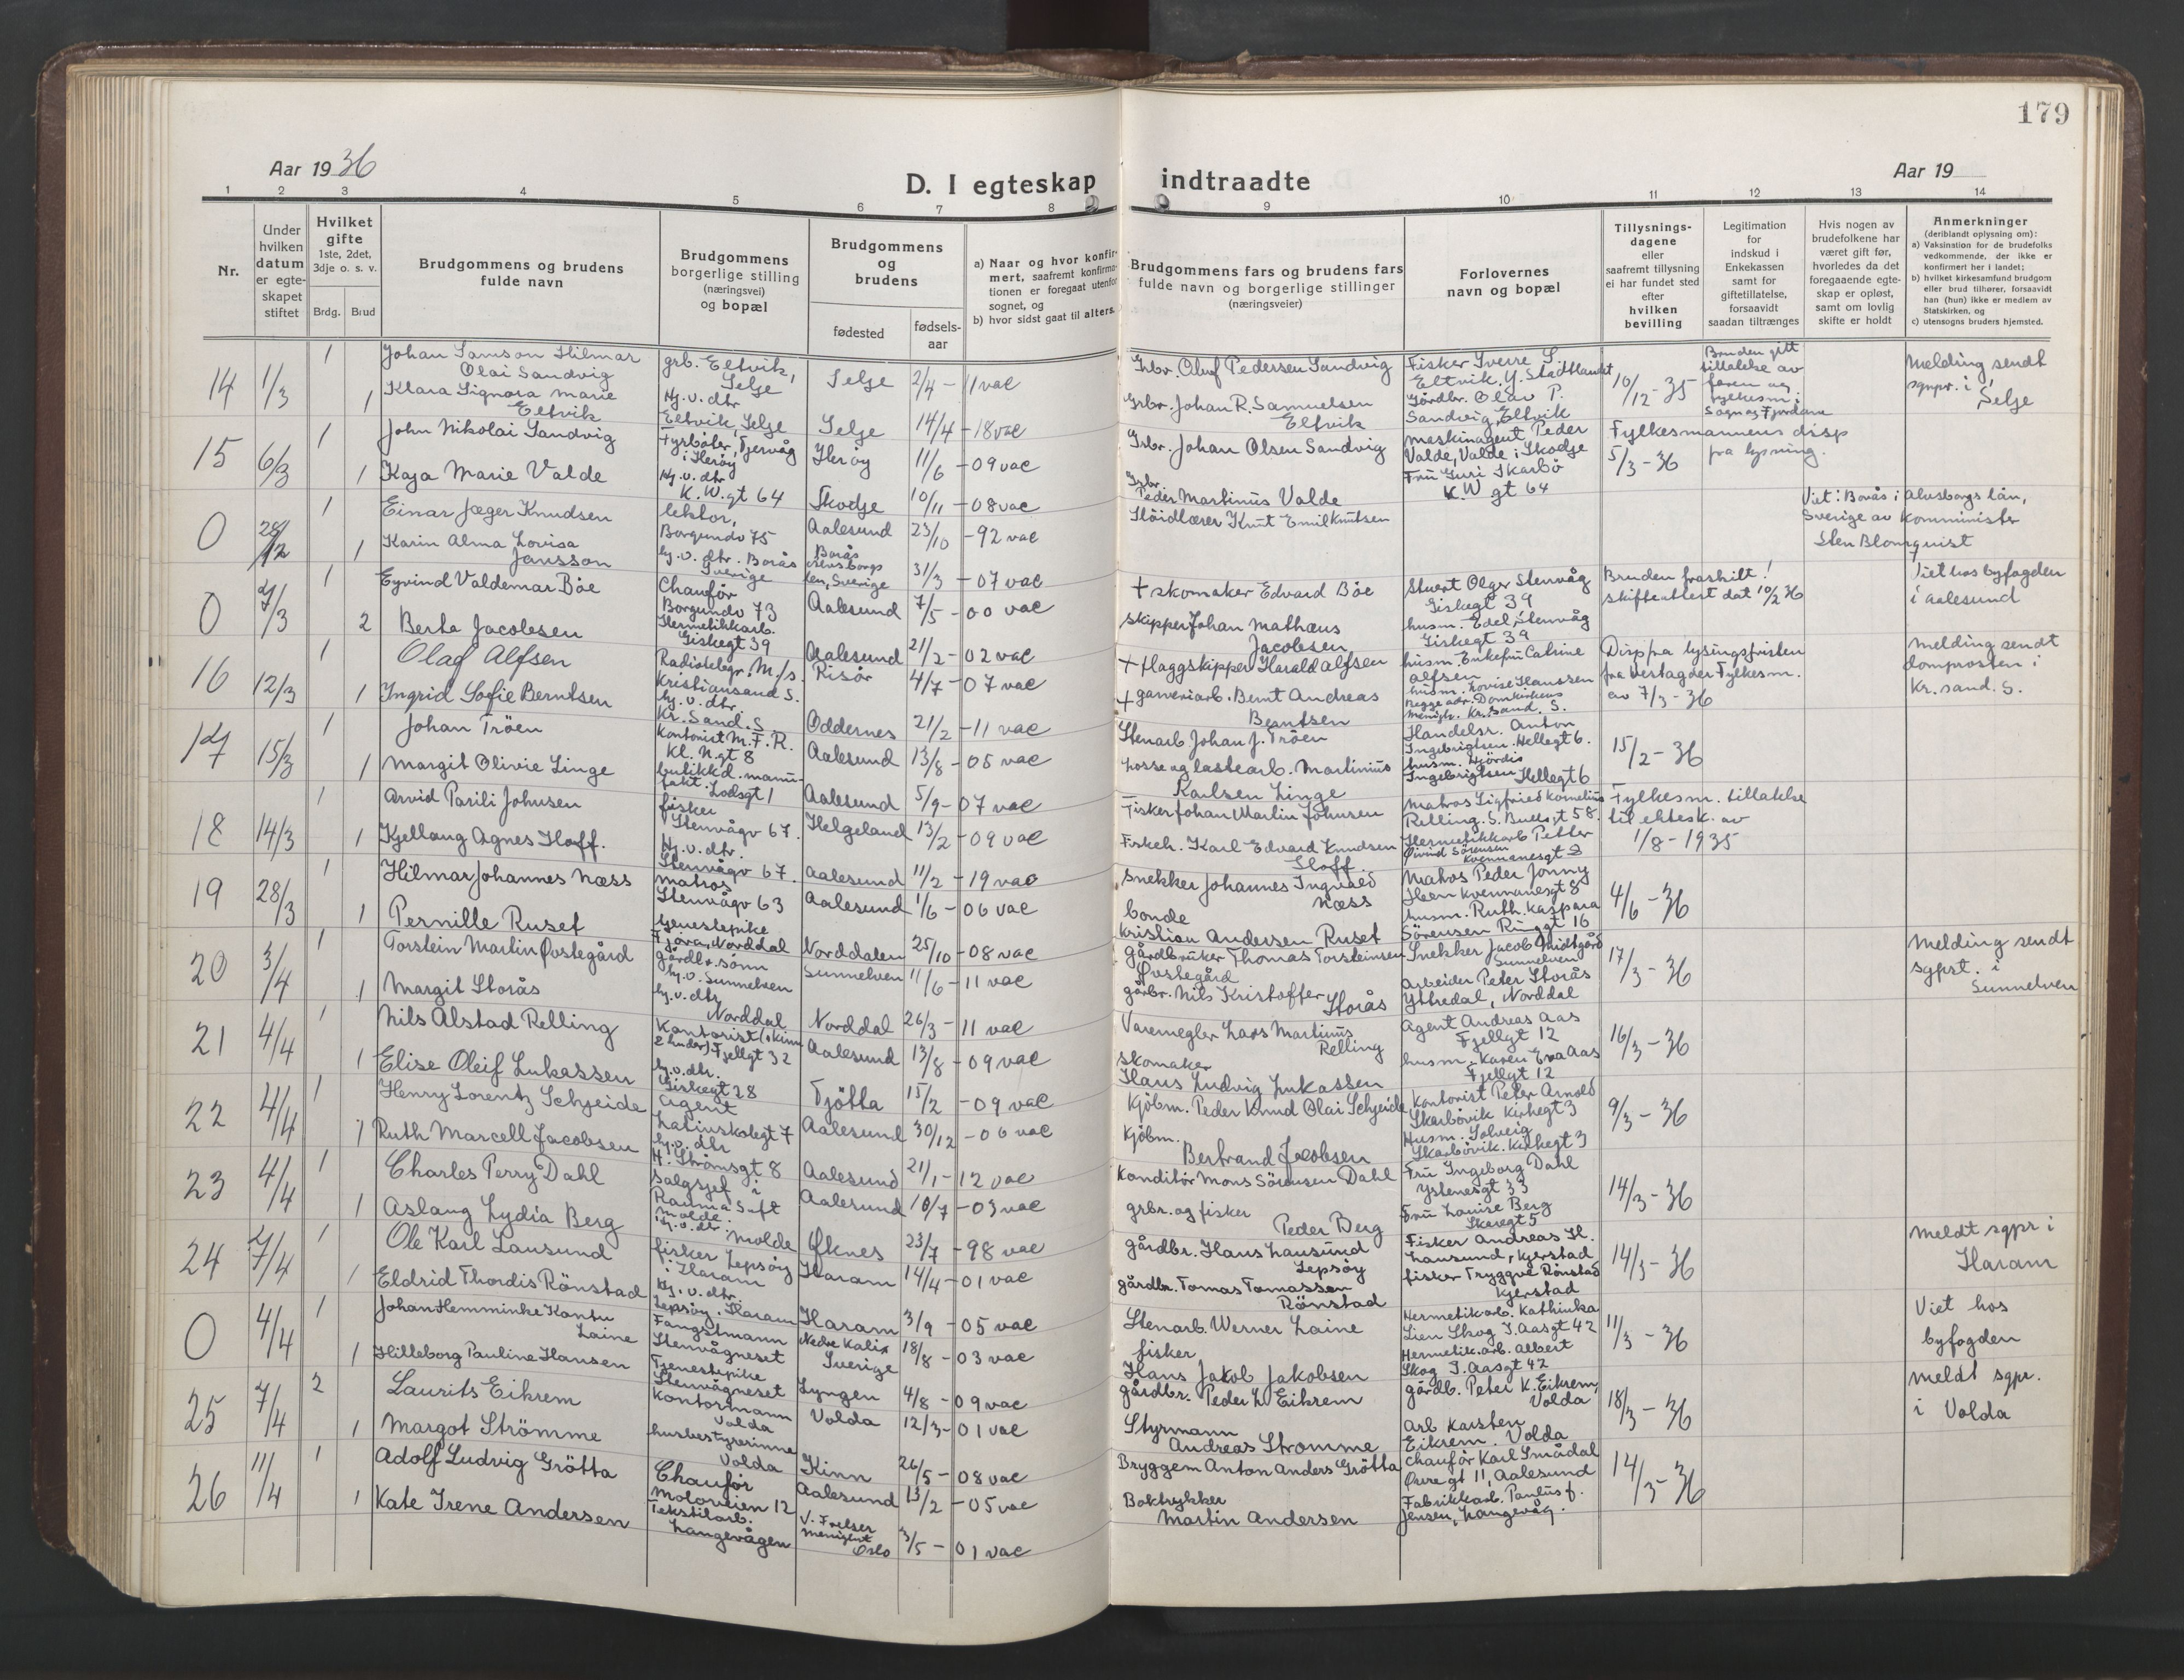 179
Aar 1936
D. I egteskap indtraadte
Aar 19
1 2 3 4 5 6 7 8 9 10 11 12 13 14
Nr.
Under hvilken datum er egteskapet stiftet
Hvilket gifte
1ste, 2det, 3dje o. s. v.
Brdg. Brud
Brudgommens og brudens fulde navn
Brudgommens borgerlige stilling (næringsvei) og bopæl
Brudgommens og brudens
fødested
fødsels-aar
a) Naar og hvor konfirmert, saafremt konfirmationen er foregaat utenfor sognet, og
b) hvor sidst gaat til alters.
Brudgommens fars og brudens fars fulde navn og borgerlige stillinger (næringsveier)
Forlovernes navn og bopæl
Tillysnings-dagene eller saafremt tillysning ei har fundet sted efter hvilken bevilling
Legitimation for indskud i Enkekassen samt for giftetillatelse, forsaavidt saadan tiltrænges
Hvis nogen av brudefolkene har været gift før, hvorledes da det foregaaende egteskap er opløst, samt om lovlig skifte er holdt
Anmerkninger
(deriblandt oplysning om):
a) Vaksination for de brudefolks vedkommende, der ikke er konfirmert her i landet;
b) hvilket kirkesamfund brudgom eller brud tilhører, forsaavidt han (hun) ikke er medlem av Statskirken, og
c) utensogns bruders hjemsted.
14 1/3 1 Johan Samson Hilmar Olai Sandvig grb. Eltvik, Selje Selje 2/4 - 11 vac Grbr. Oluf Pedersen Sandvig Fisker Sverre S. Eltvik, 10/12 - 35 Bruden gitt tillatelse av faren og fylkesm. i Sogn og Fjordane Melding sendt sgnpr. i Selje
1 Klara Signora Marie Eltvik Hj.v. dtr Eltvik, Selje Selje 14/4 - 18 vac Grbr. Johan R. Samuelsen Eltvik Gårdbr. Olav P. Sandvig, Eltvik
15 6/3 1 John Nikolai Sandvig Fyrbøter, Tjervåg i Herøy Herøy 11/6 - 09 vac Grbr. Johan Olsen Sandvig Maskinagent Peder Valde, Valde i Skodje Fylkesmannens disp fra lysning. 5/3 - 36
1 Kaja Marie Valde Hj.v. dtr K.W. gt 64 Skodje 10/11 - 08 vac Grbr. Peder Martinus Valde Fru Guri Skarbö K.W gt 64
0 28/12 1 Einar Jæger Knudsen lektor, Borgundv 75 Aalesund 23/10 - 92 vac Slöidlærer Knut Emil Knutsen Viet i Borås i Alvsborgs län, Sverige av Komminister Sten Blomquist
1 Karin Alma Lovisa Jansson hj.v. dtr. Borås Sverige Borås Sverige 31/3 - 07 vac
0 7/3 1 Eyvind Valdemar Böe Chauför Borgundv 73 Aalesund 7/5 - 00 vac + skomaker Edvard Böe Stuert Olger Stenvåg Giskegt 39 Bruden fraskilt! Skifteattest dat 10/2 36 Viet hos byfogden i Aalesund
2 Berta Jacobsen Hermetikkarb. Giskegt 39 Aalesund 21/2 - 02 vac skipper Johan Mathæus Jacobsen husm. Edel Stenvåg Giskegt 39
16 12/3 1 Olaf Alfsen Radiotelegr. M/s. Kristiansand S. Risör 4/7 - 07 vac + flaggskipper Harald Alfsen husm. Enkefru Catrine Alfsen Disp fra lysingsfristen fra Vestagder Fylkesm. av 7/3 - 36 Melding sendt domprosten i Kr. sand. S.
1 Ingrid Sofie Berntsen hj.v. dtr Kr. Sand. S Oddernes 21/2 - 11 vac + garveriarb. Bernt Andreas Berntsen husm. Lovise Hanssen Begge adr. Domkirkens menigh. Kr. sand. S.
17 15/3 1 Johan Tröen Kontorist M.F.R. Kl. N. gt 8 Aalesund 13/8 - 05 vac Stenarb Johan J. Tröen Handelsr. Anton Ingebrigtsen. Hellegt 6. 15/2 - 36
1 Margit Olivie Linge butikkd. manufakt. Lodsgt 1 Aalesund 5/9 - 07 vac Losse og lastearb. Martinius Karlsen Linge husm. Hjördis Ingebrigtsen Hellegt 6
18 14/3 1 Arvid Parili Johnsen fisker Stenvågv 67. Helgeland 13/2 - 09 vac Fisker Johan Martin Johnsen Matros Sigfried Kornelius Relling. S. Bullsgt 58. Fylkesm. tillatelse til ektesk. av 1/8 - 1935
1 Kjellaug Agnes Hoff. Hj.v. dtr. Stenvågv 67. Aalesund 11/2 - 19 vac Fiskeh. Karl Edvard Knudsen Hoff Hermetikkarb Petter Öivind Sörensen Kvennanesgt 2
19 28/3 1 Hilmar Johannes Næss matros Stenvågv 63 Aalesund 1/6 - 06 vac Snekker Johannes Ingvald Næss Matros Peder Jonny Heen Kvennanesgt 8 4/6 - 36
1 Pernille Ruset tjenestepike Fjöra, Norddal Norddalen 25/10 - 08 vac bonde Kristian Andersen Ruset husm. Ruth. Kaspara Sörensen Ringgt 16
20 3/4 1 Torstein Martin Ovstegård gårdbr. sönn Sunnelven Sunnelven 11/6 - 11 vac gårdbruker Thomas Torsteinsen Ovstegård Snekker Jacob Midtgård Sunnelven 17/3 - 36 Melding sendt sgpst. i Sunnelven
1 Margit Storås hj.v. dtr Norddal Norddal 26/3 - 11 vac gårbr. Nils Kristoffer Storås arbeider Peter Storås Yttredal, Norddal
21 4/4 1 Nils Alstad Relling Kontorist Fjellgt 32 Aalesund 13/8 - 09 vac Varemegler Lars Martinus Relling Agent Andreas Aas Fjellgt 12 16/3 - 36
1 Elise Oleif Lukassen hj.v. dtr. Giskegt 28 Tjötta 15/2 - 09 vac Skomaker Hans Ludvig Lukassen husm. Karen Eva Aas Fjellgt 12
22 4/4 1 Henry Lorentz Schjeide Agent Latinskolegt 7 Aalesund 30/12 - 06 vac Kjöbm. Peder Knud Olai Schjeide Kontorist Peter Arnold Skarbövik Kirkegt 3 9/3 - 36
1 Ruth Marcell Jacobsen hj.v. dtr H. Strömsgt 8 Aalesund 21/1 - 12 vac Kjöbm. Bertrand Jacobsen Husm. Solveig Skarbövik. Kirkegt 3
23 4/4 1 Charles Perry Dahl Salgssjef i Rauma Saft Molde. Aalesund 10/7 - 03 vac Konditör Mons Sörensen Dahl Fru Ingeborg Dahl Ystenesgt 33 14/3 - 36
1 Aslaug Lydia Berg hj.v. dtr. Molde Öksnes 23/7 - 98 vac grbr. og fisker Peder Berg Fru Louise Berg Skaregt 5
24 7/4 1 Ole Karl Lausund fisker Lepsöy i Haram Haram 14/4 - 01 vac gårdbr. Hans Lausund Lepsöy Fisker Andreas H. Lausund, Kjerstad 14/3 - 36 Meldt sgpr i Haram
1 Eldrid Thordis Rönstad Hj.v. dtr. Lepsöy. Haram Haram 3/9 - 05 vac gårdbr. Tomas Tomassen Rönstad fisker Tryggve Rönstad Kjerstad
0 4/4 1 Johan Hemminke Kantu Laine Fangstmann Stenvågneset Nedre Kalix Sverige 18/8 - 03 vac Stenarb. Werner Laine Hermetikarb. Kathinka Lien Skog J. Aasgt 42 11/3 - 36 Viet hos byfogden
1 Hilleborg Pauline Hansen Tjenestepike Stenvågneset Lyngen 4/8 - 09 vac fisker Hans Jakob Jakobsen Hermetik.arb. Albert Skog J. Aasgt 42
25 7/4 2 Laurits Eikrem Kontormann Volda Volda 12/3 - 01 vac gårdbr. Peder L. Eikrem gårdb. Peter K. Eikrem, Volda 18/3 - 36 meldt sgpr. i Volda
1 Margot Strömme husbestyrerinne Volda Kinn 26/5 - 08 vac Styrmann Andreas Stromme Arb Karsten Eikrem. Volda
26 11/4 1 Adolf Ludvig Grötta Chauför Moloveien 12 Aalesund 13/2 - 05 vac Bryggem Anton Anders Grötta Chauför Karl Smådal Övre gt 11, Aalesund 14/3 - 36
1 Kate Irene Andersen Tekstilarb. Langevågen V. Frelser menighet Oslo 3/5 - 01 vac Boktrykker Martin Andersen Fabrikkarb. Paulus J. Jensen, Langevåg.